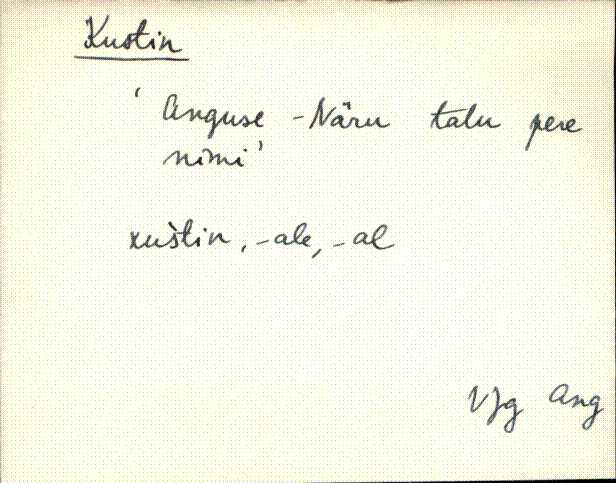 Kustin
' Anguse - Näru talu pere
nimi'
kuśtin, -ale, -al
VJg Ang